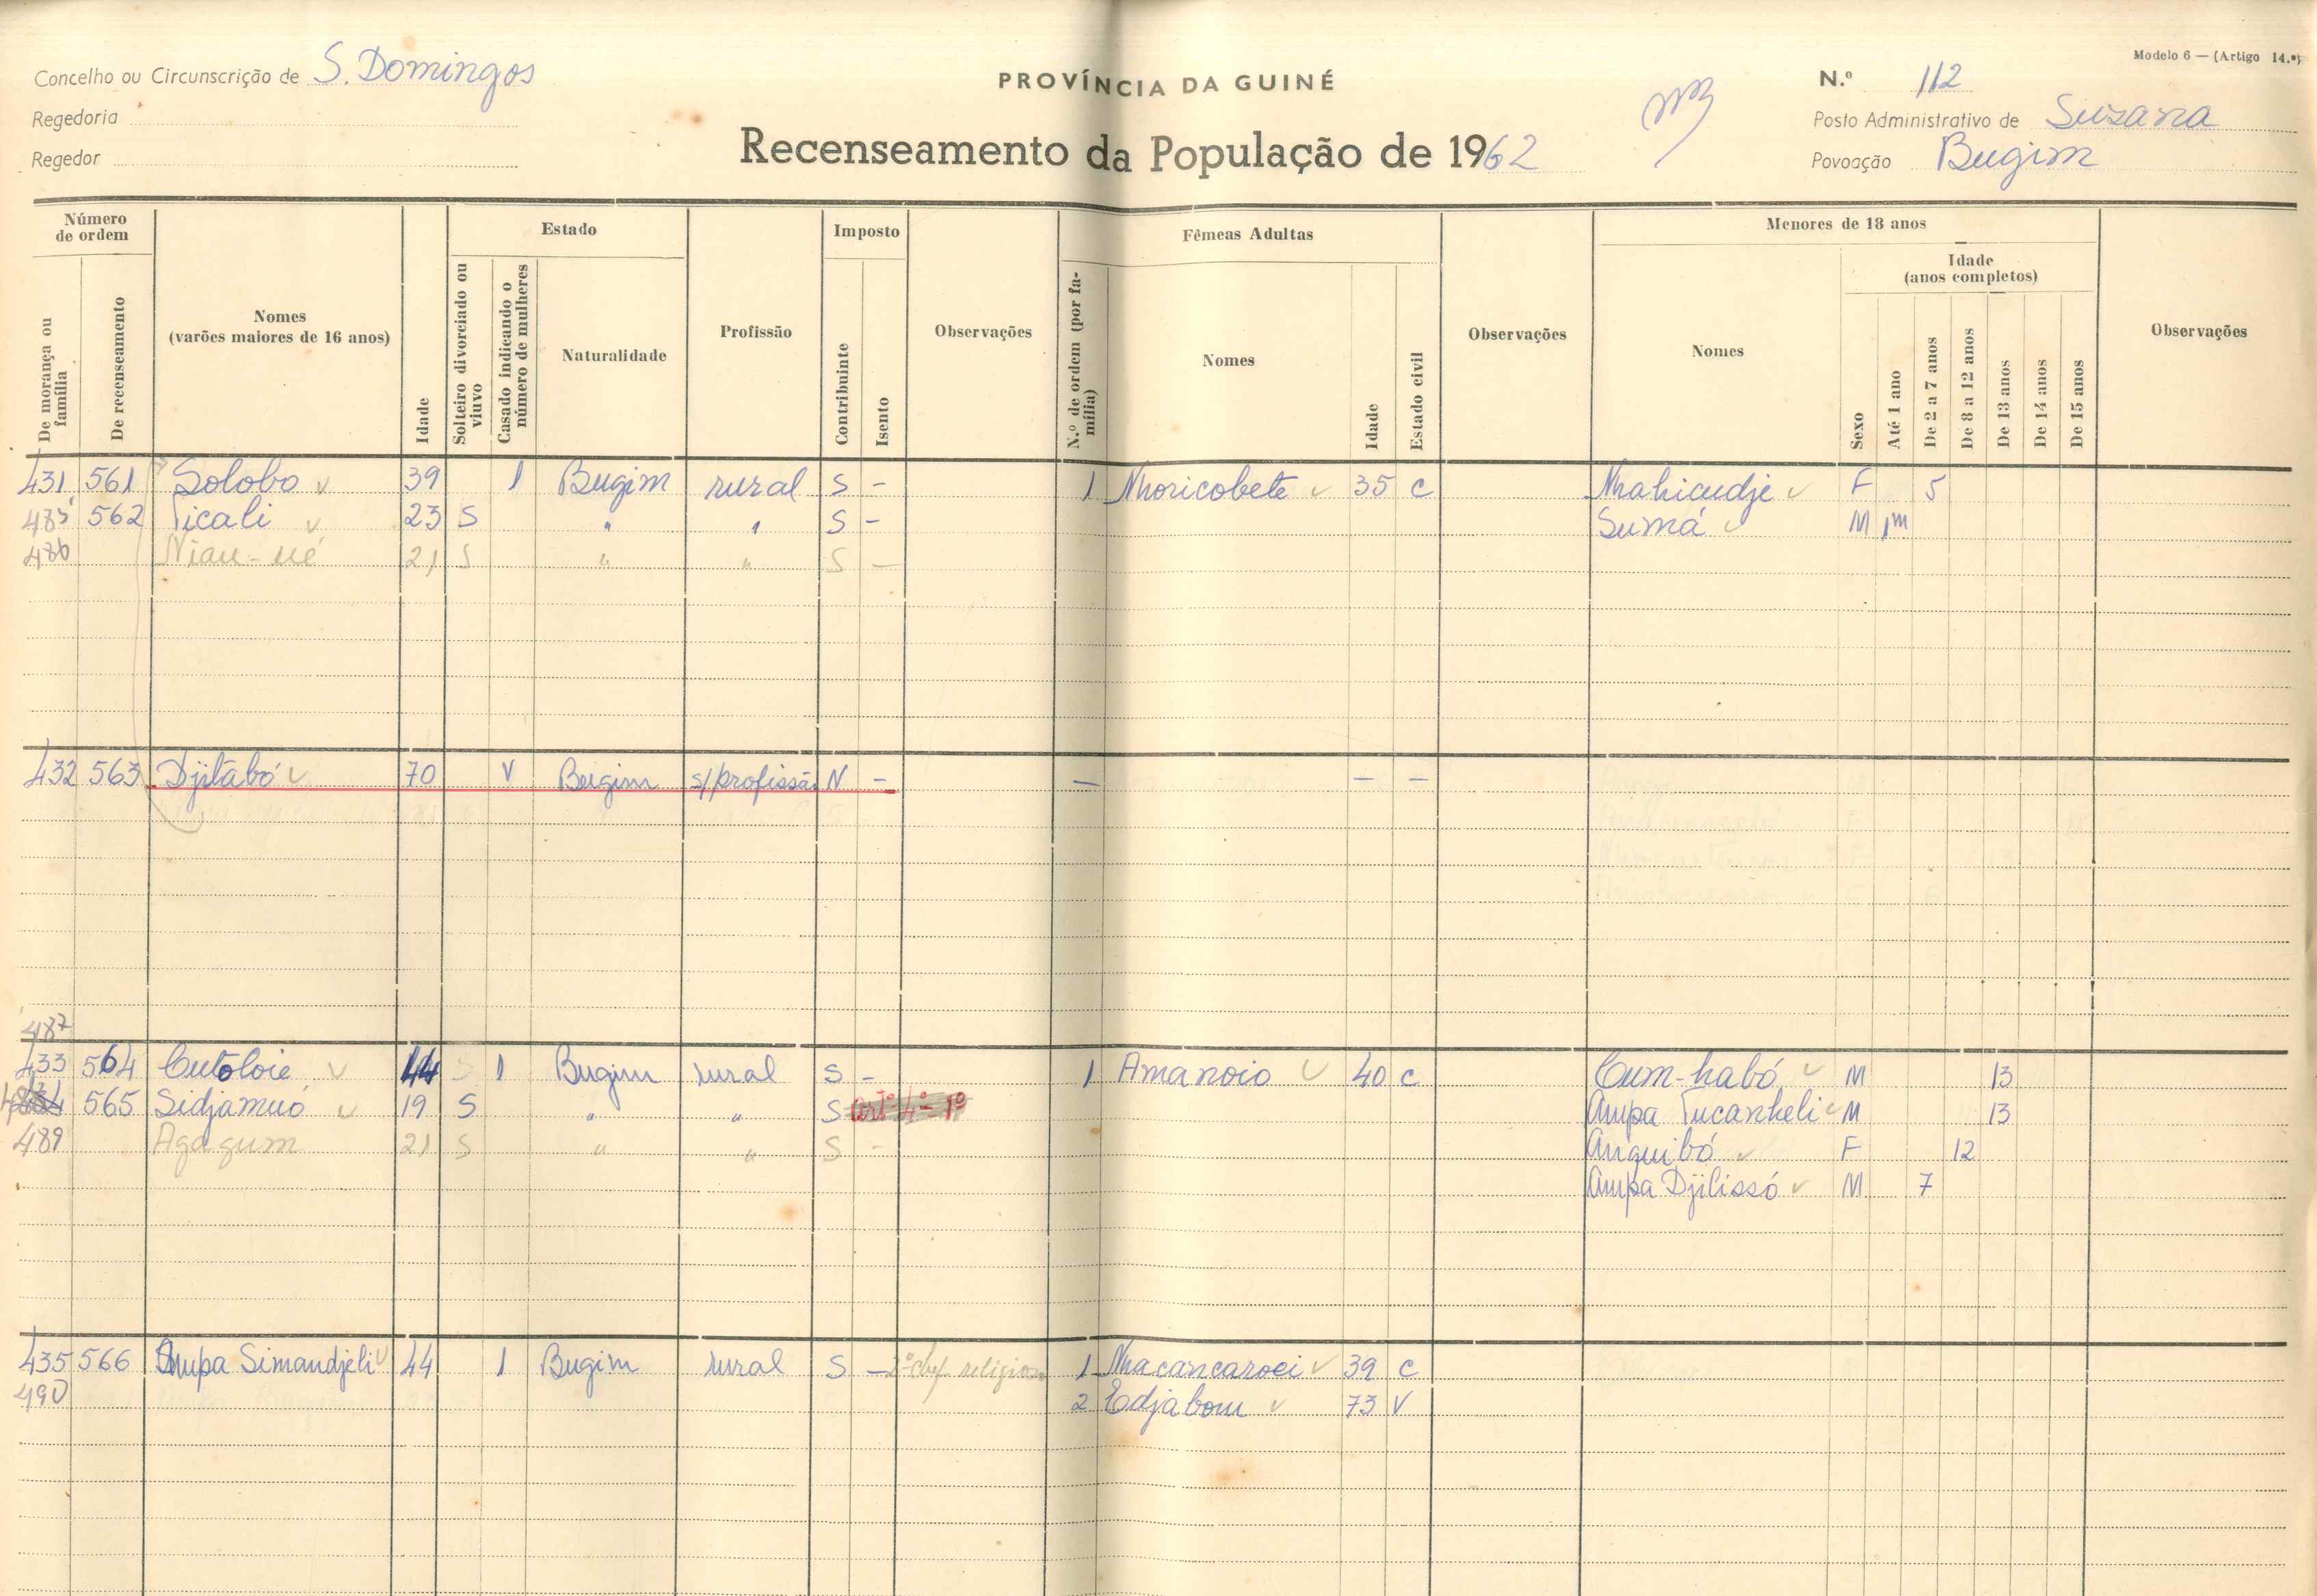 Modelo 6 — (Artigo 14.º)
Concelho ou Circunscrição de S. Domingos
PROVÍNCIA DA GUINÉ
N.º 112
Regedoria
Posto Administrativo de Suzana
Regedor
Recenseamento da População de 1962
Povoação Bugim
Número de ordem
De morança ou família
De recenseamento
Nomes
(varões maiores de 16 anos)
Idade
Estado
Solteiro divorciado ou viuvo
Casado indicando o número de mulheres
Naturalidade
Profissão
Imposto
Contribuinte
Isento
Observações
Fêmeas Adultas
N.º de ordem (por família)
Nomes
Idade
Estado civil
Observações
Menores de 18 anos
Nomes
Sexo
Idade
(anos completos)
Até 1 ano
De 2 a 7 anos
De 8 a 12 anos
De 13 anos
De 14 anos
De 15 anos
Observações
431 561 Solobo 39 1 Bugim rural S - 1 Nhoricobete 35 C Nhahicudje F 5
485 562 Ticali 23 S " " S - Sumá M 1m
486 Niau-ué 21 S " " S —
432 563 Djitabó 70 V Bugim s/profissão N - — — —
487
433 564 Cutoloié 44 1 Bugim rural S - 1 Amanoio 40 C Cum-habó M 13
565 Sidjamuó 19 S " " S artº 4º 1º Ampa Tucanheli M 13
489 Agagum 21 S " " S - Anquibó F 12
Ampa Djilissó M 7
435 566 Ampa Simandjeli 44 1 Bugim rural S — 2º chef. religioso 1 Nhacancaroei 39 C
490 2 Edjabom 73 V